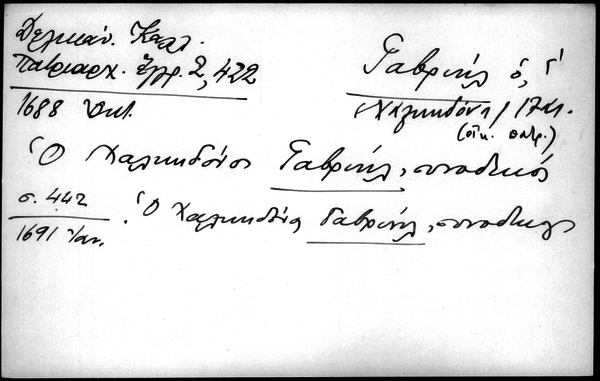 Δελικάν. Καλλ.
Πατριαρχ. Ἔγγρ. 2, 422
1688 Ὀκτ.
Γαβριήλ ὁ, Γ΄
Χαλκηδόνα / 17 αι.
(οἰκ. πατρ.)
Ὁ Χαλκηδόνος Γαβριήλ, συνοδικός
σ. 442
1691 Ἰαν.
Ὁ Χαλκηδόνος Γαβριήλ, συνοδικός